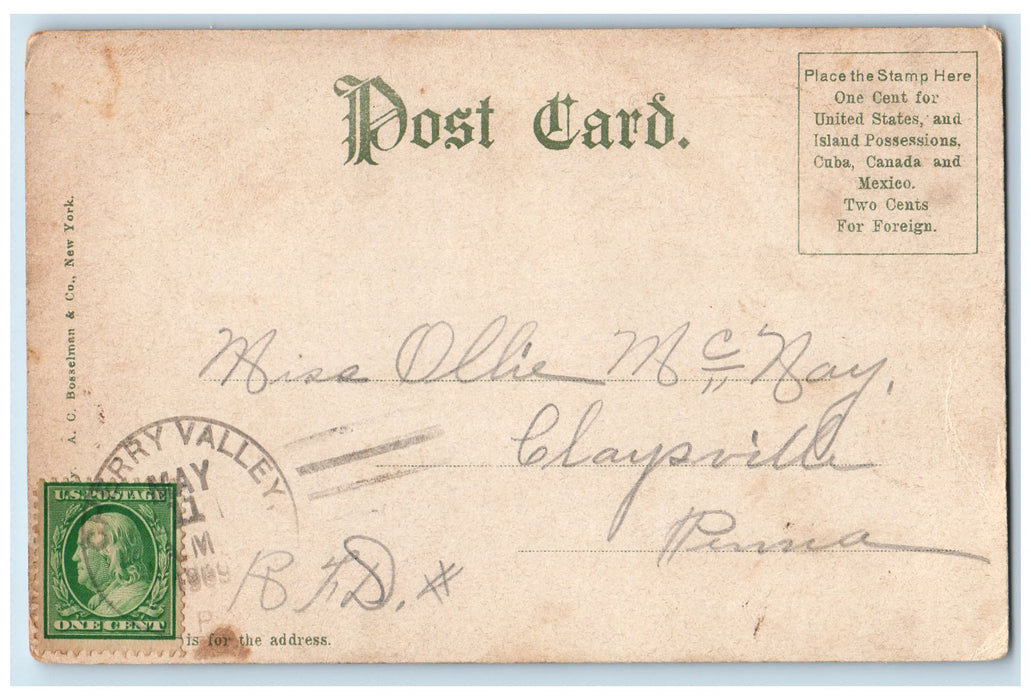 Post Card.
Place the Stamp Here
One Cent for
United States, and
Island Possessions,
Cuba, Canada and
Mexico.
Two Cents
For Foreign.
A. C. Bosselman & Co., New York.
Miss Ollie McNay,
Claysville
Penna
R F D. #
CHERRY VALLEY,
MAY
M
1909
P
U.S. POSTAGE
ONE CENT
is for the address.